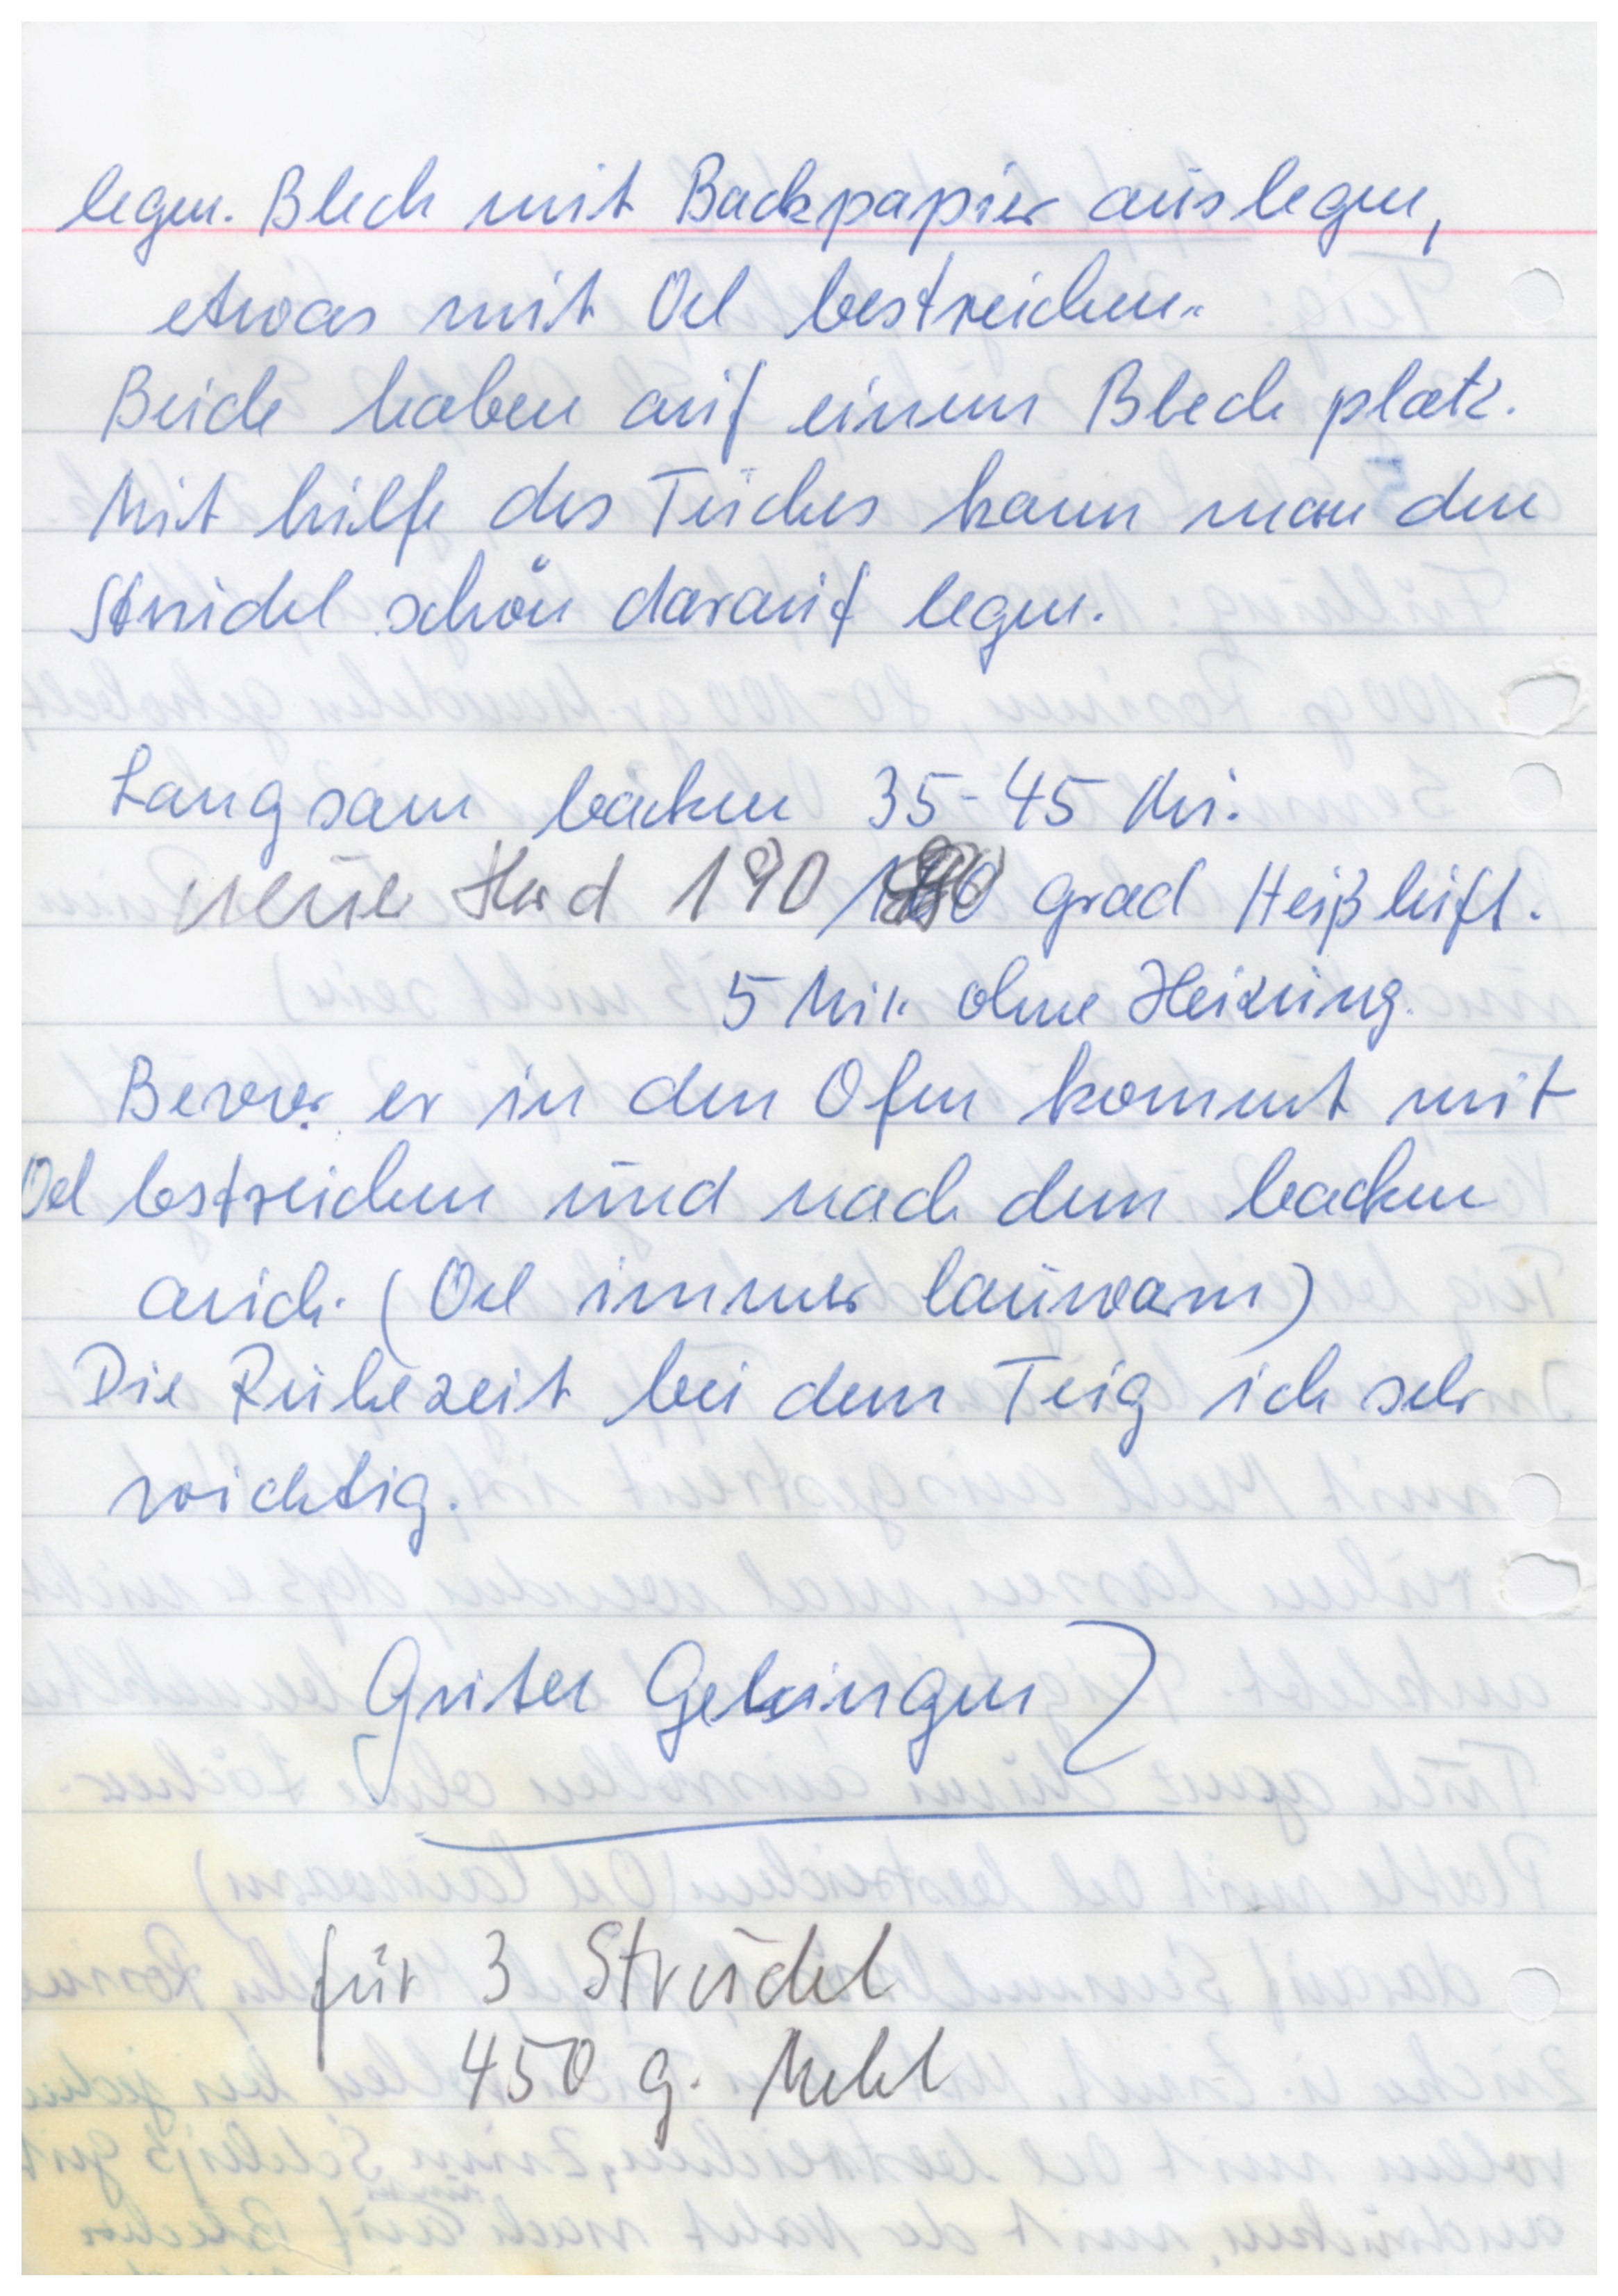 legen. Blech mit Backpapier auslegen,
etwas mit Oel bestreichen.
Beide haben auf einem Blech platz.
Mit hilfe des Tuches kann man den
Strudel schön darauf legen.
Langsam backen 35-45 Mi.
neue Herd 190 / grad Heißluft.
5 Min ohne Heizung.
Bevor er in den Ofen kommt mit
Oel bestreichen und nach dem backen
auch. (Oel immer lauwarm)
Die Ruhezeit bei dem Teig ich sehr
wichtig.
Gutes Gelingen
für 3 Strudel
450 g. Mehl